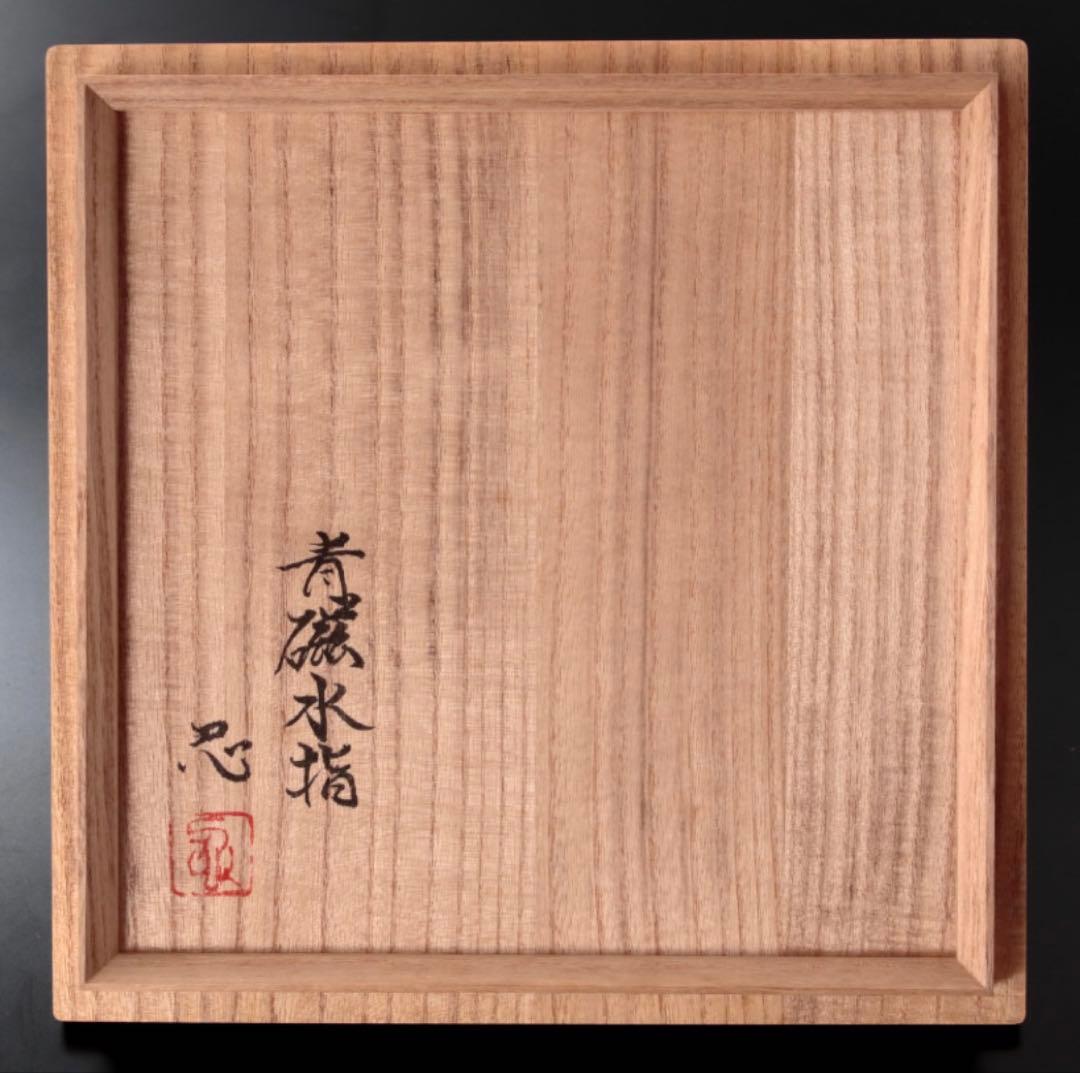 青磁水指
忍